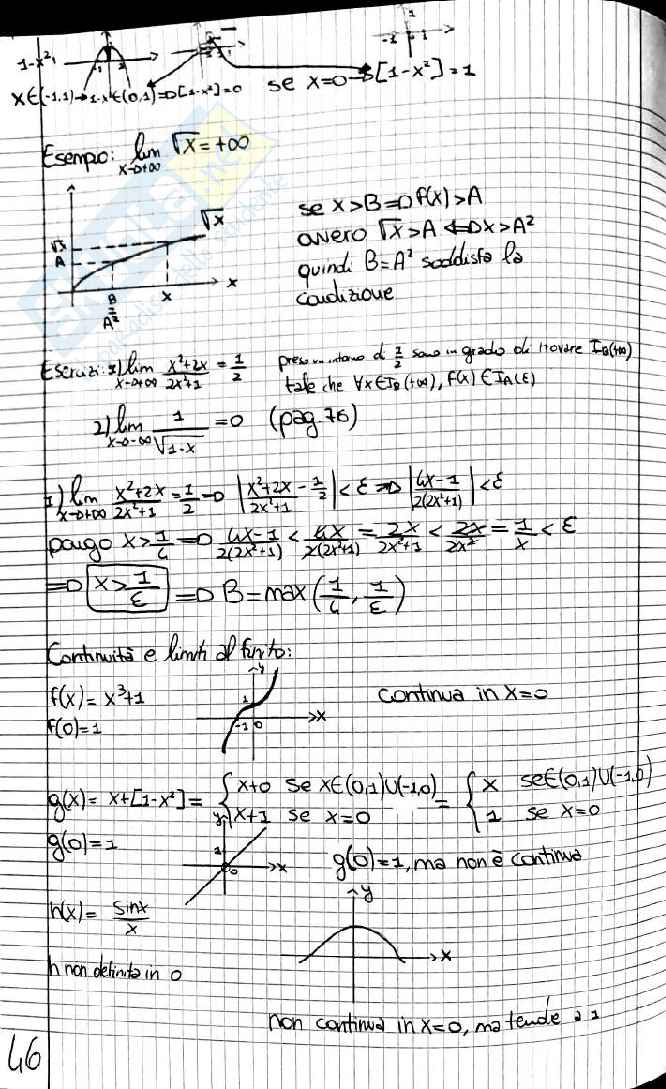 1-x²
x∈(-1,1)→1-x²∈(0,1)⇒[1-x²]=0 se x=0→[1-x²]=1
Esempio: lim x→+∞ √x=+∞
√x
√x
A
B
x
x
A²
se x>B⇒f(x)>A
ovvero √x>A⇔x>A²
quindi B=A² soddisfa la
condizione
Esercizi: 1) lim x→+∞ (x²+2x)/(2x²+1) = 1/2 preso un intorno di 1/2 sono in grado di trovare I_B(+∞)
tale che ∀x∈I_B(+∞), f(x)∈I_A(ε)
2) lim x→-∞ 1/√(1-x) =0 (pag.76)
1) lim x→+∞ (x²+2x)/(2x²+1) = 1/2 → |(x²+2x)/(2x²+1) - 1/2|<ε ⇒ |(4x-1)/(2(2x²+1))|<ε
pongo x>1/4 ⇒ (4x-1)/(2(2x²+1)) < 4x/(2(2x²+1)) = 2x/(2x²+1) < 2x/(2x²) = 1/x < ε
⇒ x>1/ε ⇒ B=max(1/4, 1/ε)
Continuità e limiti al finito:
y
f(x)=x³+1
1
-1 0
x
continua in x=0
f(0)=1
g(x)= x+[1-x²]= { x+0 se x∈(0,1)∪(-1,0) = { x se∈(0,1)∪(-1,0)
x+1 se x=0 1 se x=0
g(0)=1
y
1
0
x
g(0)=1, ma non è continua
h(x)= sinx/x
y
x
h non definita in 0
non continua in x=0, ma tende a 1
46